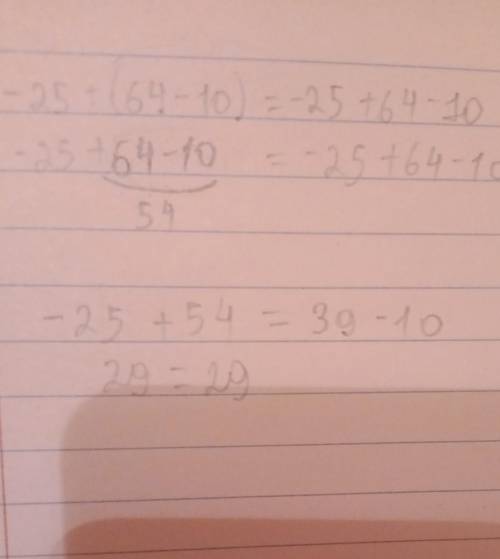 -25 + (64-10) = -25 +64 -10
-25 + 64-10 = -25 +64 -10
54
-25 + 54 = 39 -10
29 = 29